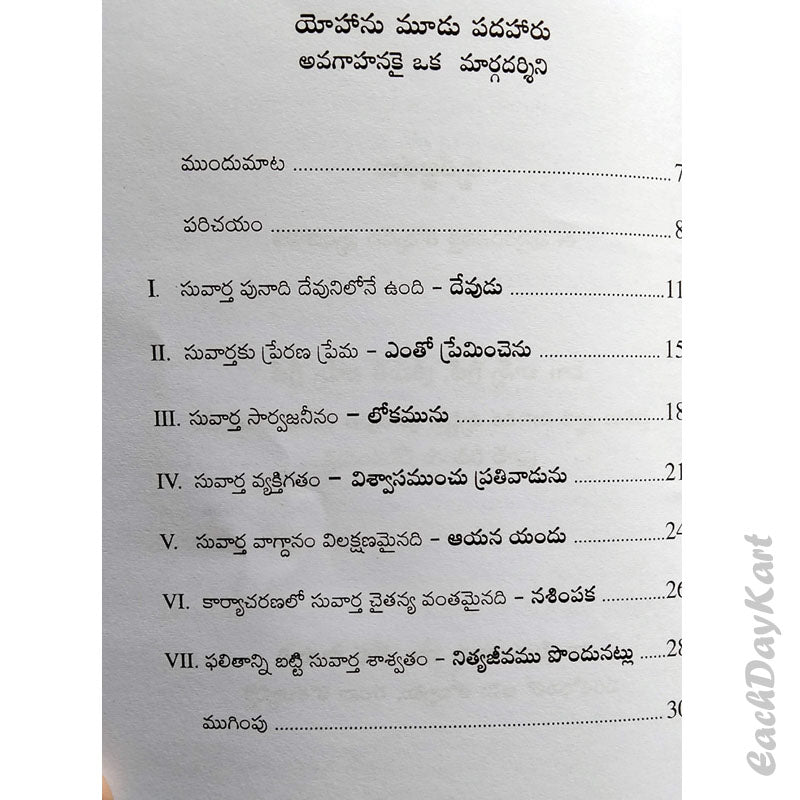 యోహాను మూడు పదహారు
అవగాహనకై ఒక మార్గదర్శిని
ముందుమాట ........................................................ 7
పరిచయం ........................................................... 8
I. సువార్త పునాది దేవునిలోనే ఉంది - దేవుడు ........................ 11
II. సువార్తకు ప్రేరణ ప్రేమ - ఎంతో ప్రేమించెను ................... 15
III. సువార్త సార్వజనీనం - లోకమును ................................ 18
IV. సువార్త వ్యక్తిగతం - విశ్వాసముంచు ప్రతివాడును .............. 21
V. సువార్త వాగ్దానం విలక్షణమైనది - ఆయన యందు .............. 24
VI. కార్యాచరణలో సువార్త చైతన్య వంతమైనది - నశింపక ............ 26
VII. ఫలితాన్ని బట్టి సువార్త శాశ్వతం - నిత్యజీవము పొందునట్లు ..... 28
ముగింపు .......................................................... 30
EachDayKart